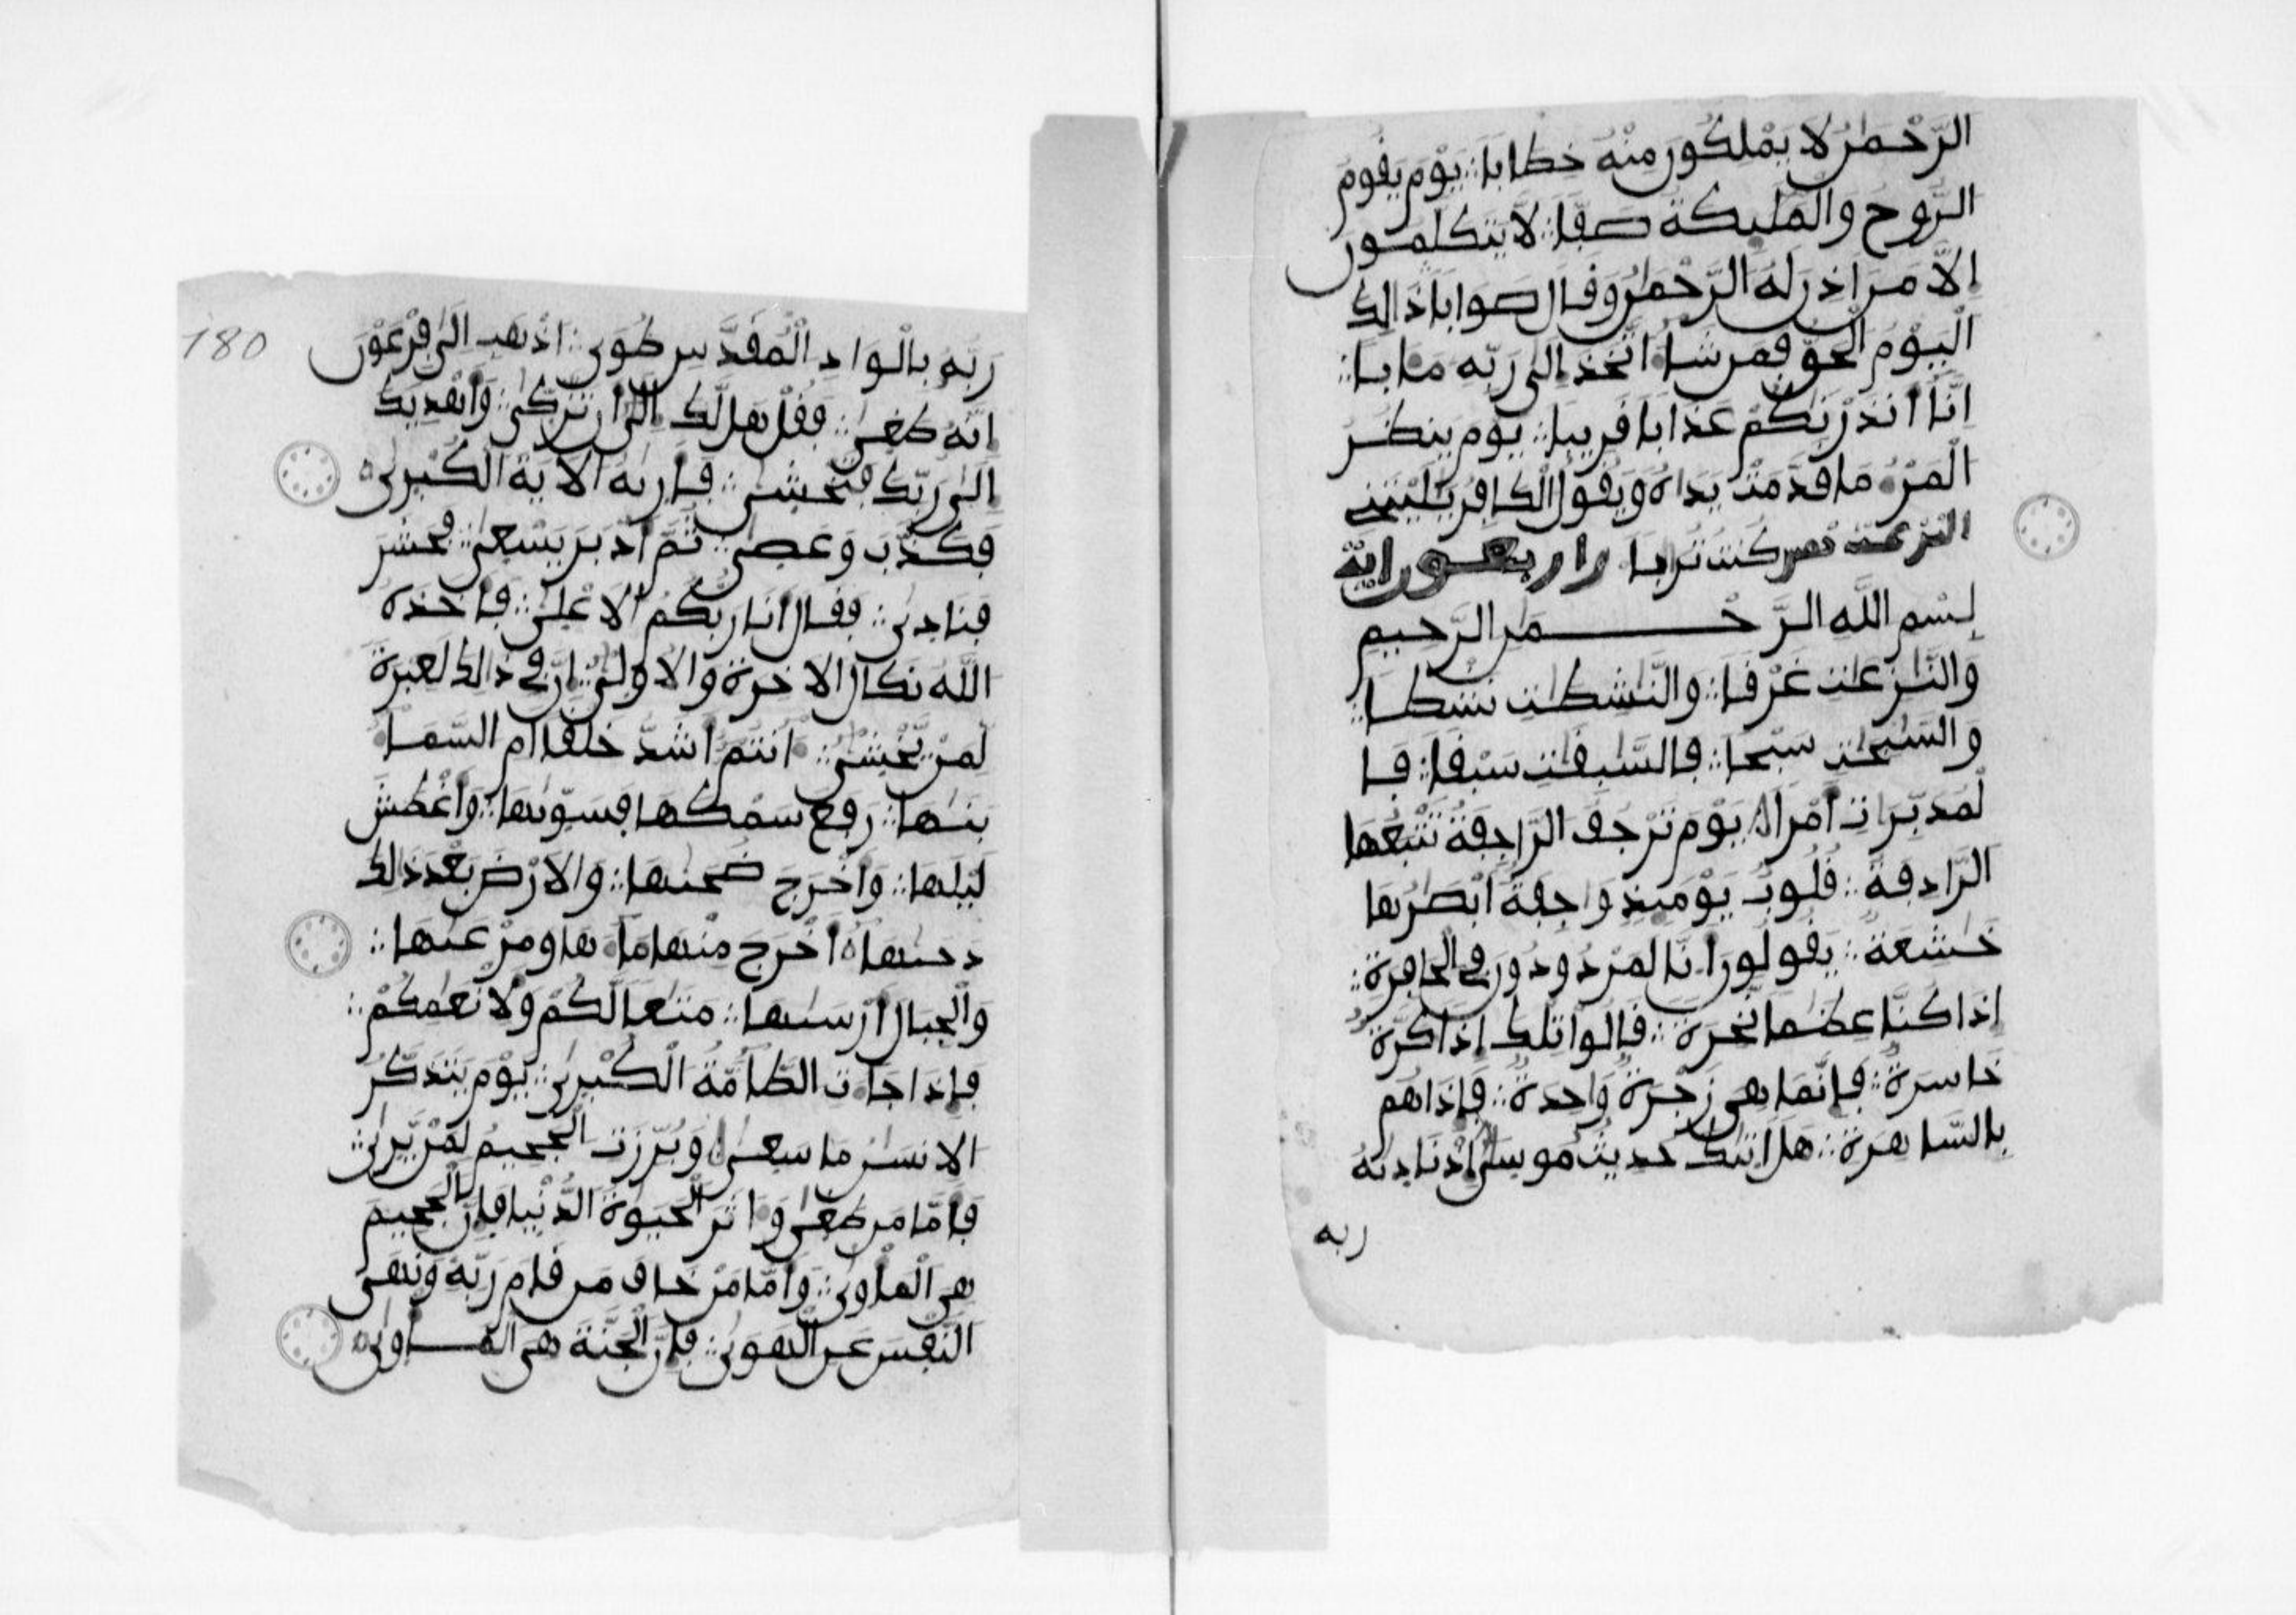 الرَّحْمَٰنِ لَا يَمْلِكُونَ مِنْهُ خِطَابًا ∴ يَوْمَ يَقُومُ
الرُّوحُ وَالْمَلَٰٓئِكَةُ صَفًّا ∴ لَا يَتَكَلَّمُونَ
إِلَّا مَنْ أَذِنَ لَهُ الرَّحْمَٰنُ وَقَالَ صَوَابًا ذَٰلِكَ
الْيَوْمُ الْحَقُّ فَمَن شَآءَ اتَّخَذَ إِلَىٰ رَبِّهِ مَـَٔابًا ∴
إِنَّا أَنذَرْنَٰكُمْ عَذَابًا قَرِيبًا ∴ يَوْمَ يَنظُرُ
الْمَرْءُ مَا قَدَّمَتْ يَدَاهُ وَيَقُولُ الْكَافِرُ يَٰلَيْتَنِي
كُنتُ تُرَٰبًا
بِسْمِ اللَّهِ الرَّحْمَٰنِ الرَّحِيمِ
وَالنَّٰزِعَٰتِ غَرْقًا ∴ وَالنَّٰشِطَٰتِ نَشْطًا ∴
وَالسَّٰبِحَٰتِ سَبْحًا ∴ فَالسَّٰبِقَٰتِ سَبْقًا ∴ فَا
لْمُدَبِّرَاتِ أَمْرًا ∴ يَوْمَ تَرْجُفُ الرَّاجِفَةُ تَتْبَعُهَا
الرَّادِفَةُ ∴ قُلُوبٌ يَوْمَئِذٍ وَاجِفَةٌ أَبْصَٰرُهَا
خَٰشِعَةٌ ∴ يَقُولُونَ أَ۟نَّا لَمَرْدُودُونَ فِي الْحَافِرَةِ ∴
إِذَا كُنَّا عِظَٰمًا نَّخِرَةً ∴ قَالُوا تِلْكَ إِذًا كَرَّةٌ
خَاسِرَةٌ ∴ فَإِنَّمَا هِيَ زَجْرَةٌ وَاحِدَةٌ ∴ فَإِذَا هُم
بِالسَّاهِرَةِ ∴ هَلْ أَتَىٰكَ حَدِيثُ مُوسَىٰ إِذْ نَادَىٰهُ
ربه
180
رَبُّهُ بِالْوَادِ الْمُقَدَّسِ طُوَىٰ ∴ اذْهَبْ إِلَىٰ فِرْعَوْنَ
إِنَّهُ طَغَىٰ ∴ فَقُلْ هَل لَّكَ إِلَىٰ أَن تَزَّكَّىٰ ∴ وَأَهْدِيَكَ
إِلَىٰ رَبِّكَ فَتَخْشَىٰ ∴ فَأَرَىٰهُ الْآيَةَ الْكُبْرَىٰ
فَكَذَّبَ وَعَصَىٰ ∴ ثُمَّ أَدْبَرَ يَسْعَىٰ ∴ فَحَشَرَ
فَنَادَىٰ ∴ فَقَالَ أَنَا رَبُّكُمُ الْأَعْلَىٰ ∴ فَأَخَذَهُ
اللَّهُ نَكَالَ الْآخِرَةِ وَالْأُولَىٰ ∴ إِنَّ فِي ذَٰلِكَ لَعِبْرَةً
لِّمَن يَخْشَىٰ ∴ ءَأَنتُمْ أَشَدُّ خَلْقًا أَمِ السَّمَآءُ
بَنَىٰهَا ∴ رَفَعَ سَمْكَهَا فَسَوَّىٰهَا ∴ وَأَغْطَشَ
لَيْلَهَا ∴ وَأَخْرَجَ ضُحَىٰهَا ∴ وَالْأَرْضَ بَعْدَ ذَٰلِكَ
دَحَىٰهَا أَخْرَجَ مِنْهَا مَآءَهَا وَمَرْعَىٰهَا ∴
وَالْجِبَالَ أَرْسَىٰهَا ∴ مَتَٰعًا لَّكُمْ وَلِأَنْعَٰمِكُمْ ∴
فَإِذَا جَآءَتِ الطَّآمَّةُ الْكُبْرَىٰ ∴ يَوْمَ يَتَذَكَّرُ
الْإِنسَٰنُ مَا سَعَىٰ ∴ وَبُرِّزَتِ الْجَحِيمُ لِمَن يَرَىٰ ∴
فَأَمَّا مَن طَغَىٰ وَءَاثَرَ الْحَيَوٰةَ الدُّنْيَا فَإِنَّ الْجَحِيمَ
هِيَ الْمَأْوَىٰ ∴ وَأَمَّا مَنْ خَافَ مَقَامَ رَبِّهِ وَنَهَى
النَّفْسَ عَنِ الْهَوَىٰ ∴ فَإِنَّ الْجَنَّةَ هِيَ الْمَأْوَىٰ